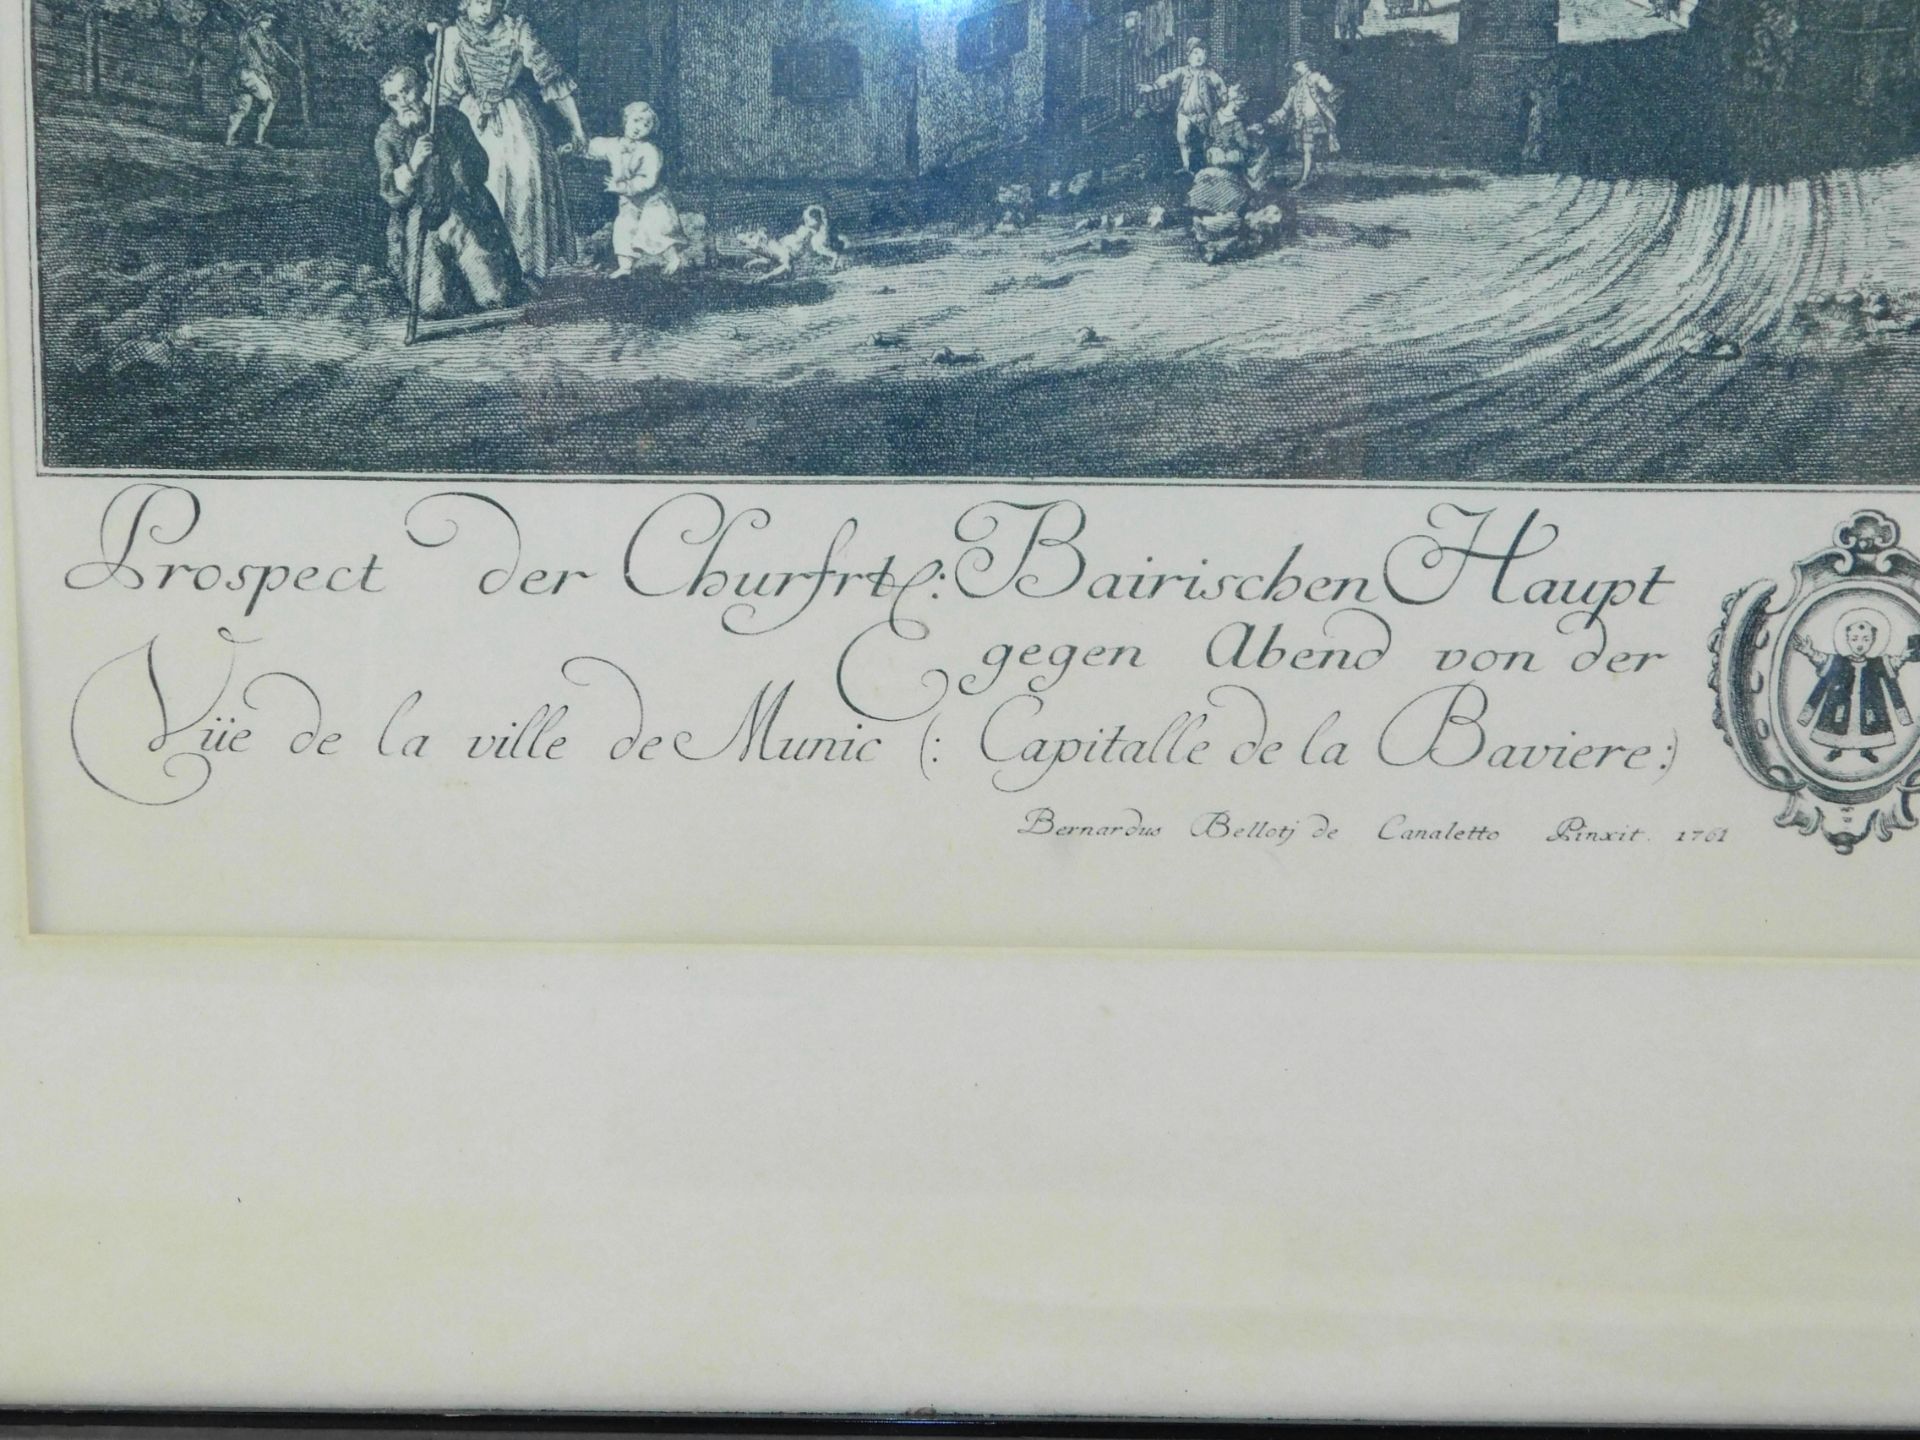 Prospect der Churfrtl: Bairischen Haupt
gegen Abend von der
Vüe de la ville de Munic (: Capitalle de la Baviere:)
Bernardus Bellotj de Canaletto Pinxit. 1761